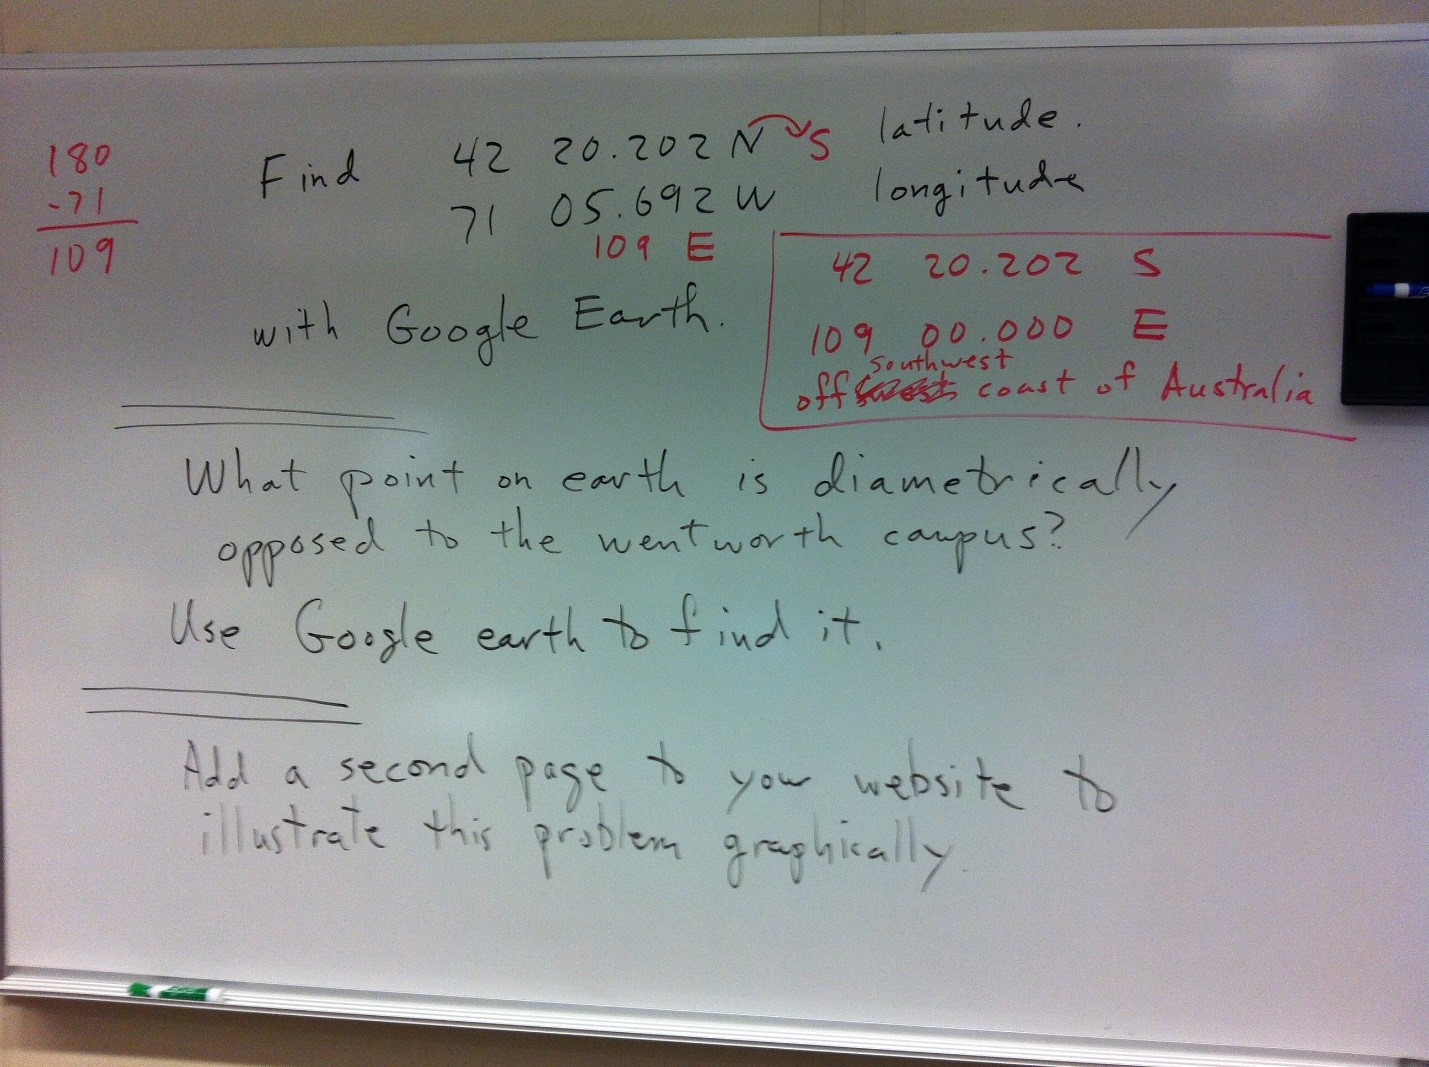 180
-71
109
Find 42 20.202 N S latitude.
71 05.692 W longitude
109 E
with Google Earth.
42 20.202 S
109 00.000 E
southwest
off coast of Australia
What point on earth is diametrically
opposed to the wentworth campus?
Use Google earth to find it.
Add a second page to your website to
illustrate this problem graphically.